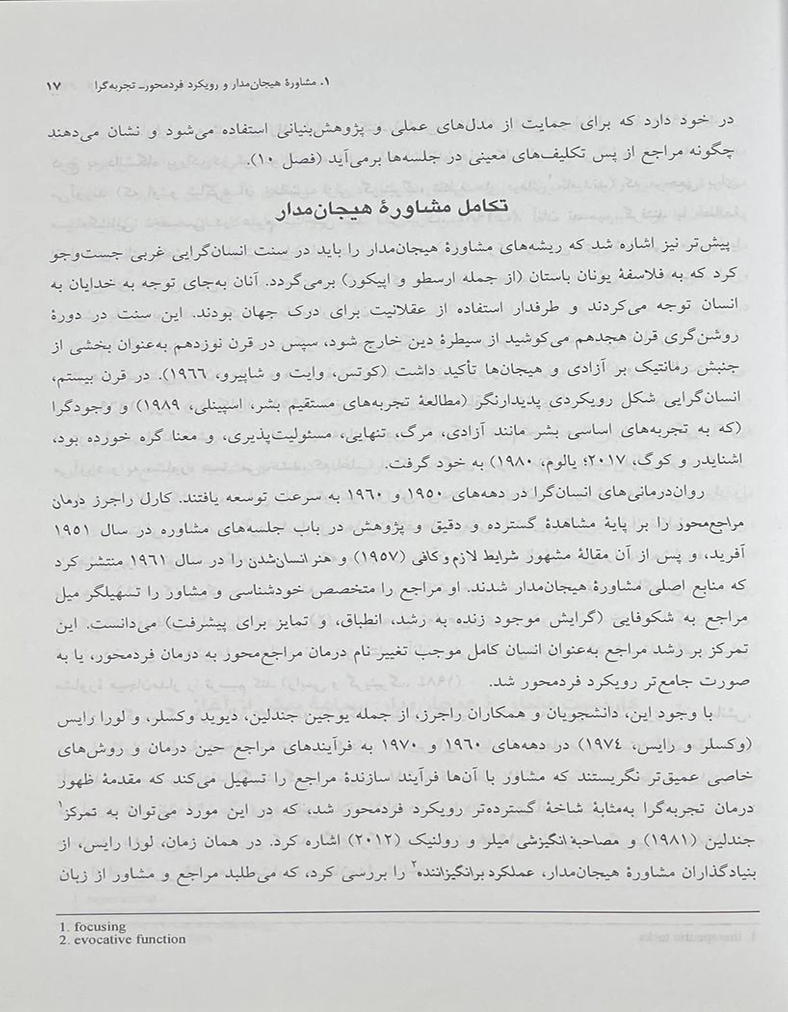 ۱. مشاورهٔ هیجان‌مدار و رویکرد فردمحور- تجربه‌گرا ۱۷
در خود دارد که برای حمایت از مدل‌های عملی و پژوهش‌بنیانی استفاده می‌شود و نشان می‌دهند
چگونه مراجع از پس تکلیف‌های معینی در جلسه‌ها برمی‌آید (فصل ۱۰).
تکامل مشاورهٔ هیجان‌مدار
پیش‌تر نیز اشاره شد که ریشه‌های مشاورهٔ هیجان‌مدار را باید در سنت انسان‌گرایی غربی جست‌وجو
کرد که به فلاسفهٔ یونان باستان (از جمله ارسطو و اپیکور) برمی‌گردد. آنان به‌جای توجه به خدایان به
انسان توجه می‌کردند و طرفدار استفاده از عقلانیت برای درک جهان بودند. این سنت در دورهٔ
روشن‌گری قرن هجدهم می‌کوشید از سیطرهٔ دین خارج شود، سپس در قرن نوزدهم به‌عنوان بخشی از
جنبش رمانتیک بر آزادی و هیجان‌ها تأکید داشت (کوتس، وایت و شاپیرو، ۱۹۶۶). در قرن بیستم،
انسان‌گرایی شکل رویکردی پدیدارنگر (مطالعهٔ تجربه‌های مستقیم بشر، اسپینلی، ۱۹۸۹) و وجودگرا
(که به تجربه‌های اساسی بشر مانند آزادی، مرگ، تنهایی، مسئولیت‌پذیری، و معنا گره خورده بود،
اشنایدر و کوگ، ۲۰۱۷؛ یالوم، ۱۹۸۰) به خود گرفت.
روان‌درمانی‌های انسان‌گرا در دهه‌های ۱۹۵۰ و ۱۹۶۰ به سرعت توسعه یافتند. کارل راجرز درمان
مراجع‌محور را بر پایهٔ مشاهدهٔ گسترده و دقیق و پژوهش در باب جلسه‌های مشاوره در سال ۱۹۵۱
آفرید، و پس از آن مقالهٔ مشهور شرایط لازم و کافی (۱۹۵۷) و هنر انسان‌شدن را در سال ۱۹۶۱ منتشر کرد
که منابع اصلی مشاورهٔ هیجان‌مدار شدند. او مراجع را متخصص خودشناسی و مشاور را تسهیلگر میل
مراجع به شکوفایی (گرایش موجود زنده به رشد، انطباق، و تمایز برای پیشرفت) می‌دانست. این
تمرکز بر رشد مراجع به‌عنوان انسان کامل موجب تغییر نام درمان مراجع‌محور به درمان فردمحور، یا به
صورت جامع‌تر رویکرد فردمحور شد.
با وجود این، دانشجویان و همکاران راجرز، از جمله یوجین جندلین، دیوید وکسلر، و لورا رایس
(وکسلر و رایس، ۱۹۷۴) در دهه‌های ۱۹۶۰ و ۱۹۷۰ به فرآیندهای مراجع حین درمان و روش‌های
خاصی عمیق‌تر نگریستند که مشاور با آن‌ها فرآیند سازندهٔ مراجع را تسهیل می‌کند که مقدمهٔ ظهور
درمان تجربه‌گرا به‌مثابهٔ شاخهٔ گسترده‌تر رویکرد فردمحور شد، که در این مورد می‌توان به تمرکز۱
جندلین (۱۹۸۱) و مصاحبهٔ انگیزشی میلر و رولنیک (۲۰۱۲) اشاره کرد. در همان زمان، لورا رایس، از
بنیادگذاران مشاورهٔ هیجان‌مدار، عملکرد برانگیزاننده۲ را بررسی کرد، که می‌طلبد مراجع و مشاور از زبان
1. focusing
2. evocative function